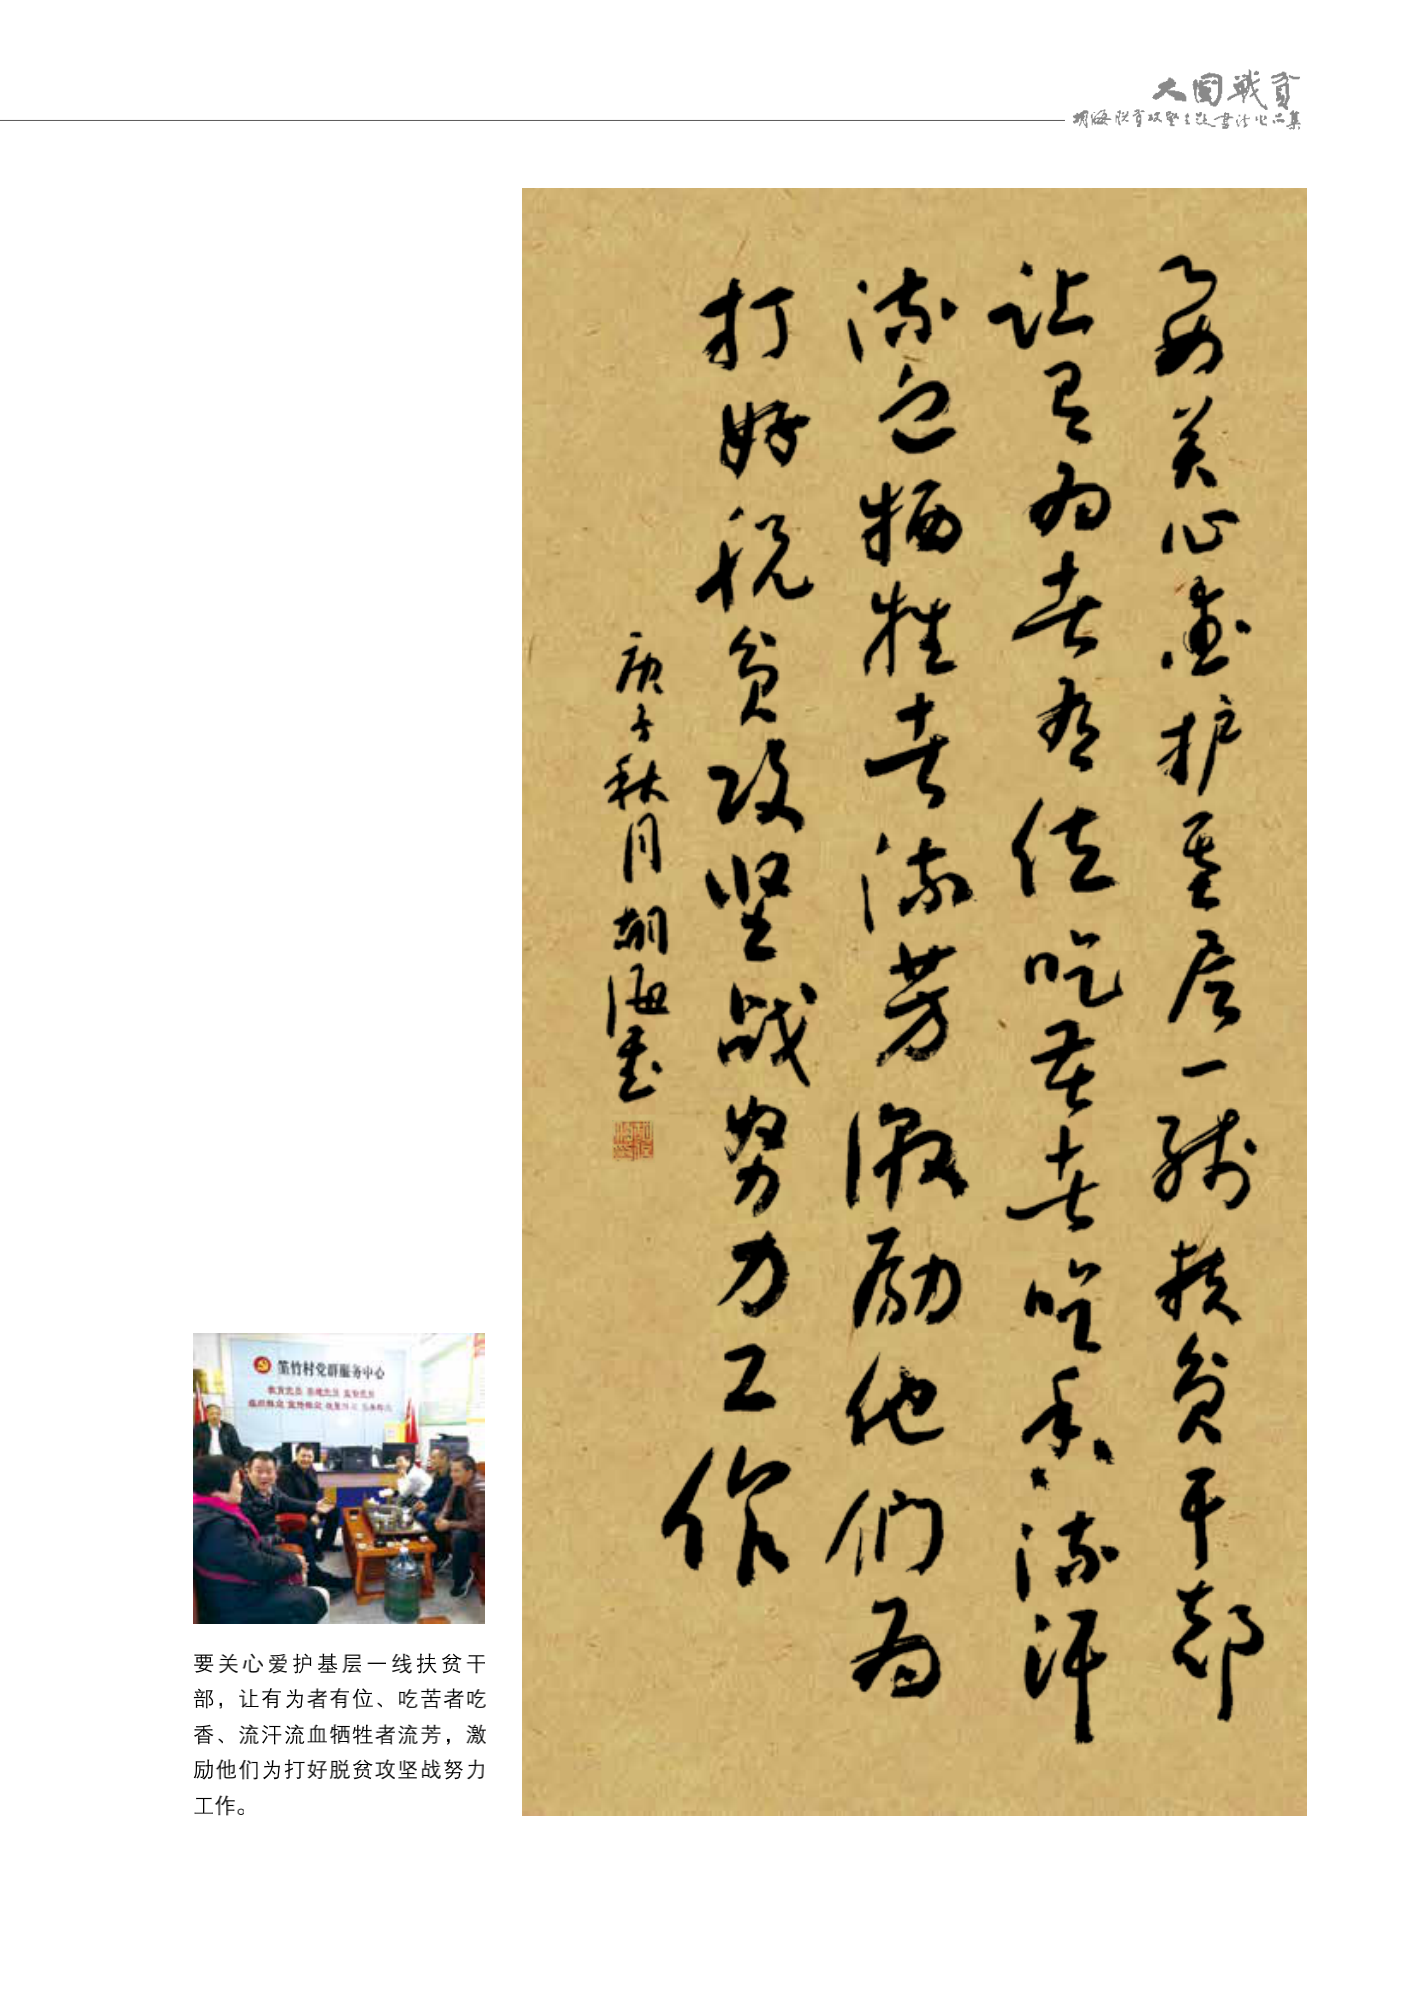 大国战贫
胡海脱贫攻坚主题书法作品集
要关心爱护基层一线扶贫干部
让有为者有位吃苦者吃香流汗
流血牺牲者流芳激励他们为
打好脱贫攻坚战努力工作
庚子秋月胡海书
笛竹村党群服务中心
要关心爱护基层一线扶贫干
部，让有为者有位、吃苦者吃
香、流汗流血牺牲者流芳，激
励他们为打好脱贫攻坚战努力
工作。